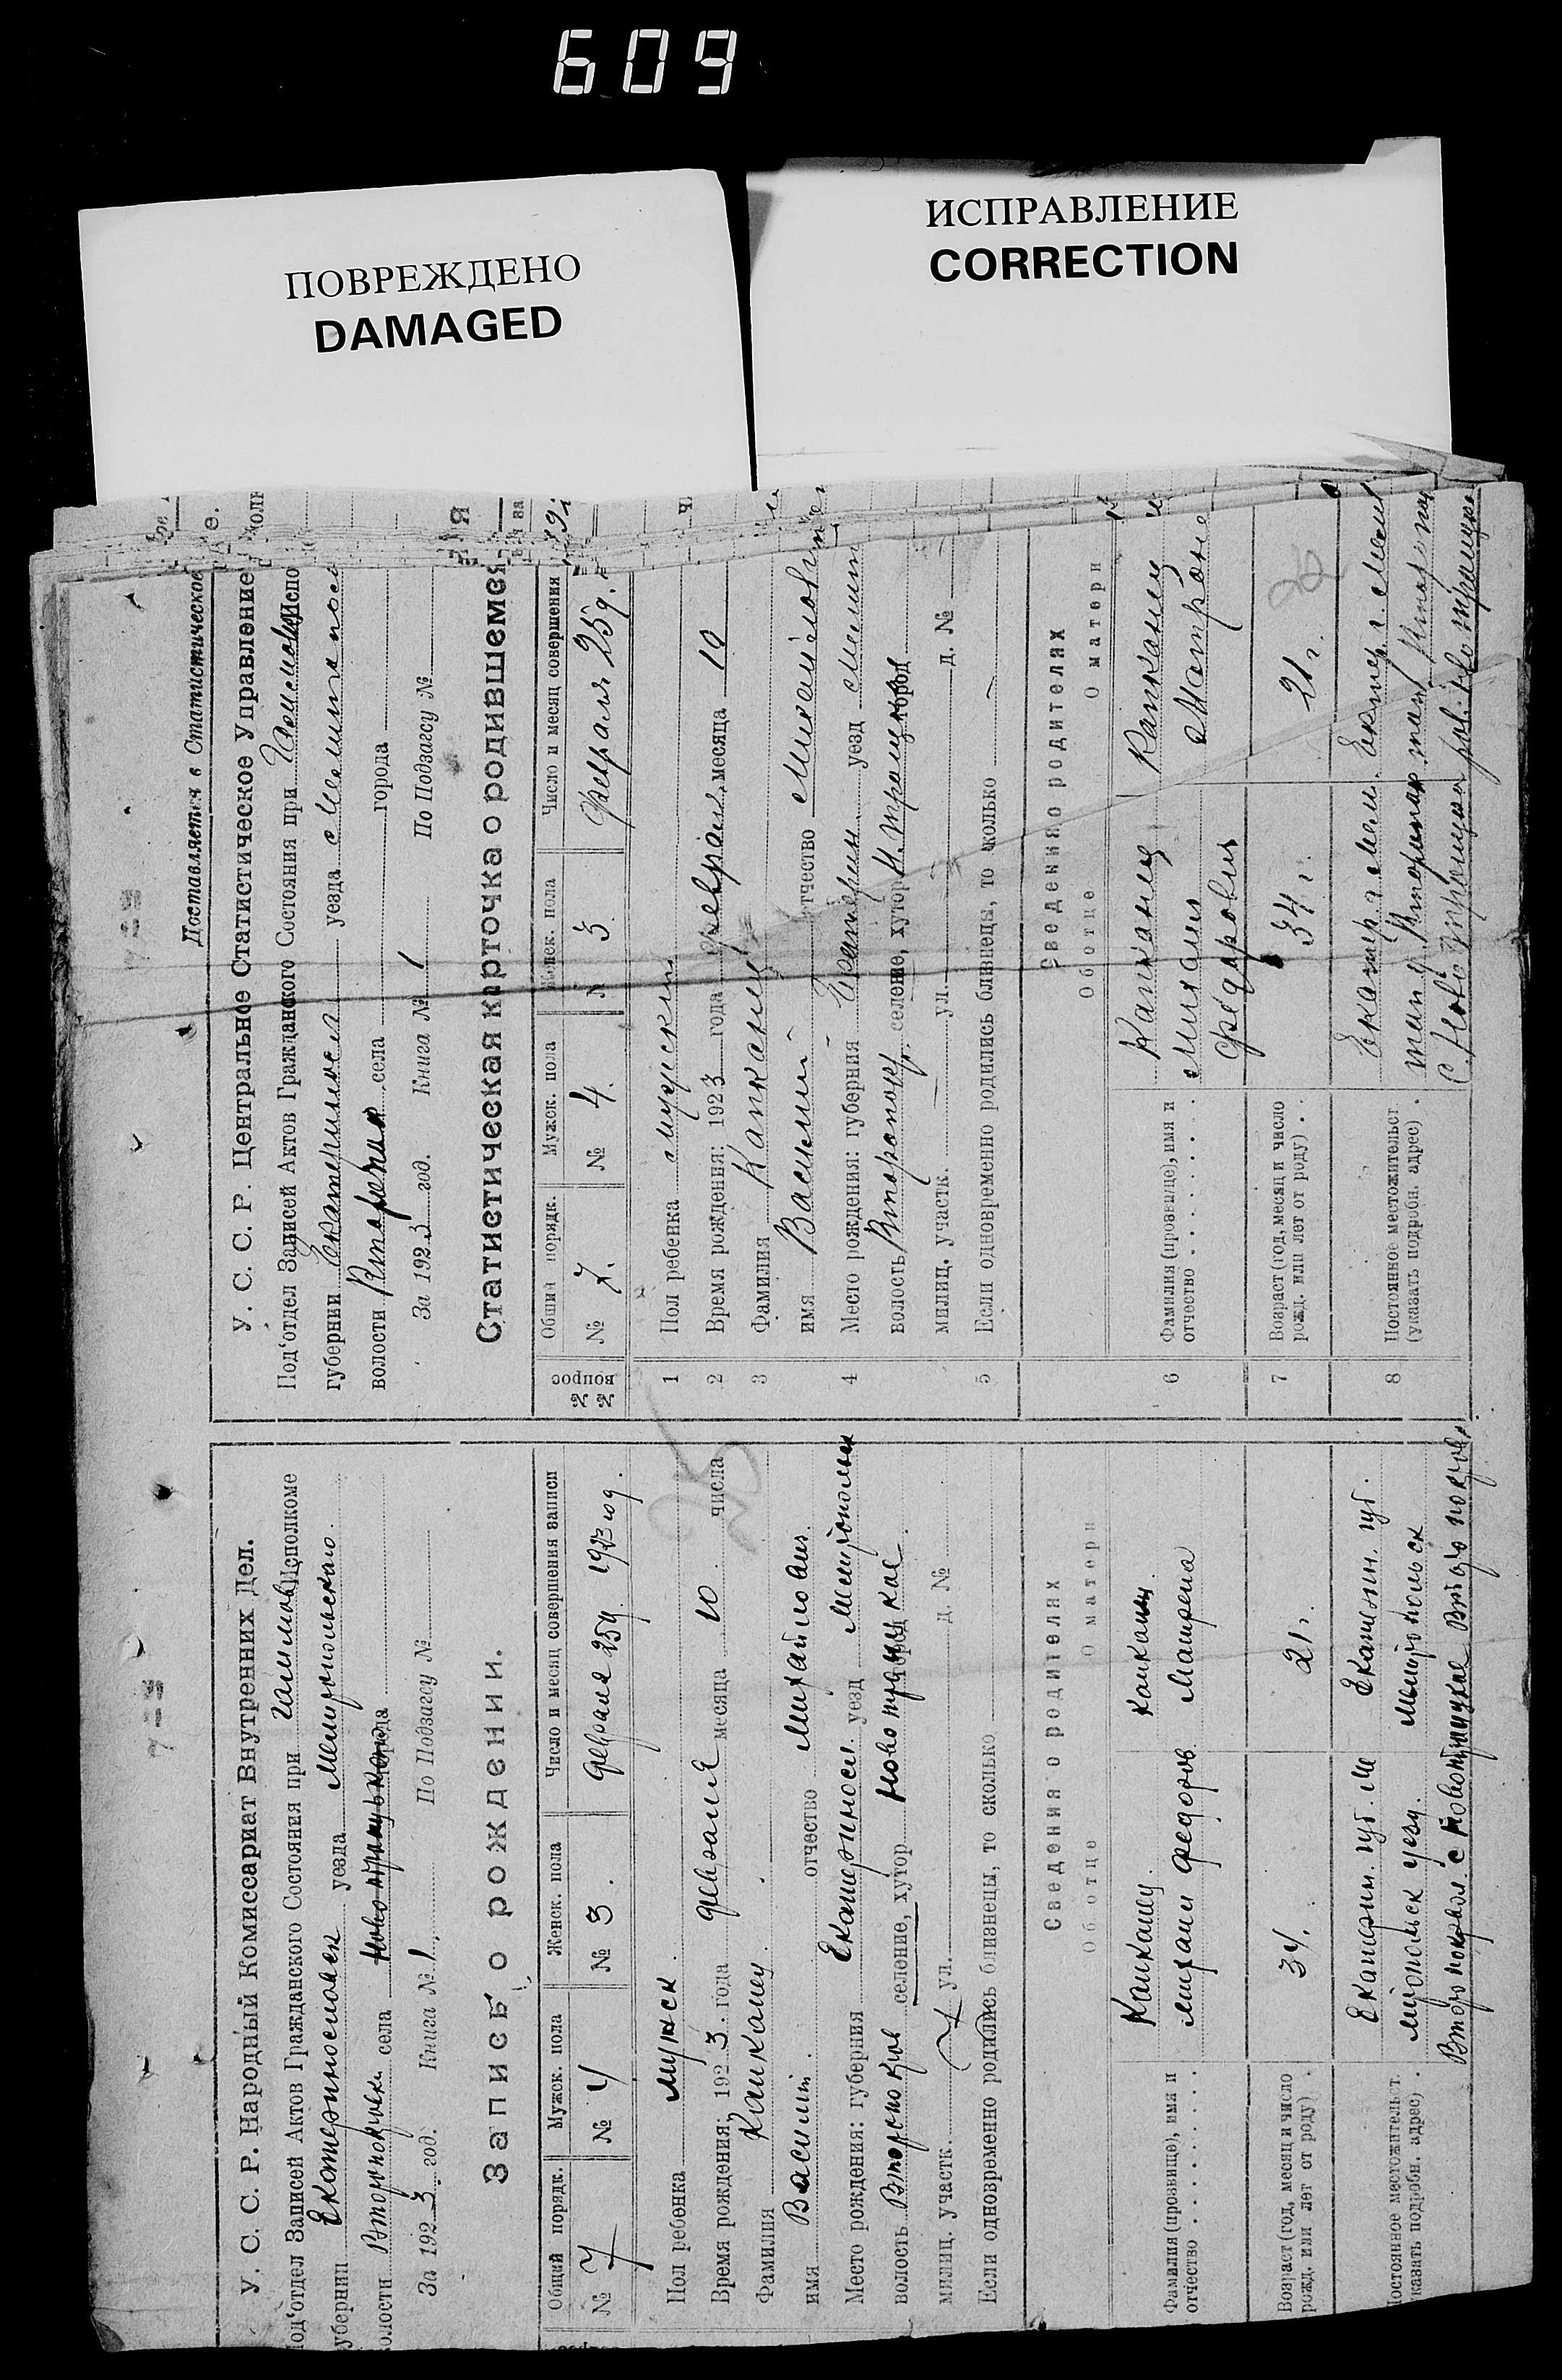 609
ПОВРЕЖДЕНО
DAMAGED
ИСПРАВЛЕНИЕ
CORRECTION
У. С. С. Р. Народный Комиссариат Внутренних Дел.
од'отдел Записей Актов Гражданского Состояния при Исполкоме
убернии Екатеринославск уезда Мелитопольского.
олости Второпокровск села Новотроицькорода
За 1923. год. Книга № 1. По Подзагсу №
Запись о рождении.
Общий порядк. Мужск. пола Женск. пола Число и месяц совершения записи
№ 7 № 4 № 3. февраля 25д. 1923 год.
Пол ребенка мужск.
Время рождения: 1923. года февраля месяца 10 числа
Фамилия Капканец.
имя Василий. отчество Михайлович.
Место рождения: губерния Екатеринослав. уезд Мелитопольск
волость Второпокров селение, хутор Новотроицкое город
милиц. участк. ул. д. №
Если одновременно родились близнецы, то сколько
Сведения о родителях
О б о т ц е О м а т е р и
Фамилия (прозвище), имя и отчество Капканец. Михаил Федоров Капканец. Матрена
Возраст (год, месяц и число рожд. или лет от роду) 34. 21 г.
остоянное местожительст. казать подробн. адрес) Екатерин. губ. Ме Екатерин. губ.
литопольск уезд. Мелитопольск
Второпокров. с Новотроицкое Второпокров
Доставляется в Статистическое
У. С. С. Р. Центральное Статистическое Управление
Под'отдел Записей Актов Гражданского Состояния при Испо
губернии Екатеринослав уезда Мелитопол
волости села города
За 1923 год. Книга № 1 По Подзагсу №
Статистическая карточка о родившемся
№№ вопрос
Общий порядк. Мужск. пола Женск. пола Число и месяц совершения
№ 7. № 4. № 3. Февраля 25 д.
1 Пол ребенка мужской
2 Время рождения: 1923 года февраля месяца 10
3 Фамилия Капканец
имя Василий отчество Михайлович
4 Место рождения: губерния Екатерин. уезд Мелит
волость Второпокр. селение, хутор Н. Троицк город
милиц. участк. ул. д. №
5 Если одновременно родились близнецы, то сколько
Сведения о родителях
О б о т ц е О м а т е р и
6 Фамилия (прозвище), имя и отчество Капканец Михаил Федорович Капканец Матрона
7 Возраст (год, месяц и число рожд. или лет от роду) 34 г. 21 г.
8 Постоянное местожительст. (указать подробн. адрес) Екатер. г. Мели. Екатер. г. Мели
С. Ново Троицка